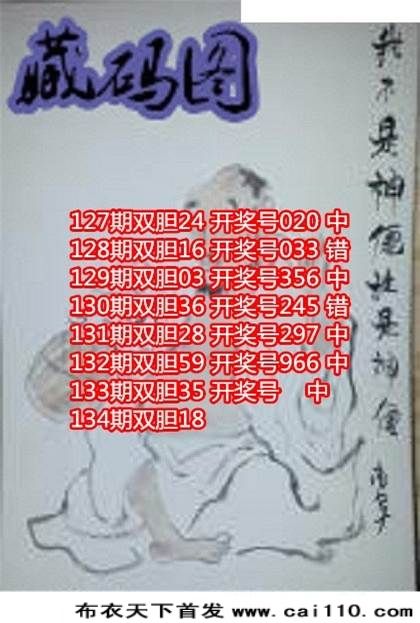 藏码图
我不是神仙壮是神仙
127期双胆24 开奖号020 中
128期双胆16 开奖号033 错
129期双胆03 开奖号356 中
130期双胆36 开奖号245 错
131期双胆28 开奖号297 中
132期双胆59 开奖号966 中
133期双胆35 开奖号 中
134期双胆18
布衣天下首发 www.cai110.com